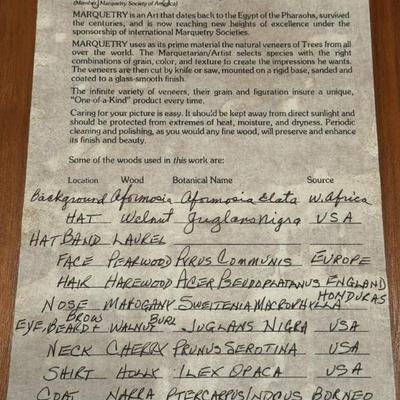 (Member, Marquetry Society of America)
MARQUETRY is an Art that dates back to the Egypt of the Pharaohs, survived
the centuries, and is now reaching new heights of excellence under the
sponsorship of international Marquetry Societies.
MARQUETRY uses as its prime material the natural veneers of Trees from all
over the world. The Marquetarian/Artist selects species with the right
combinations of grain, color, and texture to create the impressions he wants.
The veneers are then cut by knife or saw, mounted on a rigid base, sanded and
coated to a glass-smooth finish.
The infinite variety of veneers, their grain and figuration insure a unique,
"One-of-a-Kind" product every time.
Caring for your picture is easy. It should be kept away from direct sunlight and
should be protected from extremes of heat, moisture, and dryness. Periodic
cleaning and polishing, as you would any fine wood, will preserve and enhance
its finish and beauty.
Some of the woods used in this work are:
Location Wood Botanical Name Source
Background Aformosia Aformosia Elata W. Africa
HAT Walnut Juglans nigra USA
HAT BAND LAUREL
FACE PEARWOOD PYRUS COMMUNIS EUROPE
HAIR HAREWOOD ACER PSEUDOPLATANUS ENGLAND
NOSE MAHOGANY SWEITENIA MACROPHYLLA HONDURAS
EYE, BROW BEARD + WALNUT BURL JUGLANS NIGRA USA
NECK CHERRY PRUNUS SEROTINA USA
SHIRT HOLLY ILEX OPACA USA
COAT NARRA PTERCARPUS INDICUS BORNEO